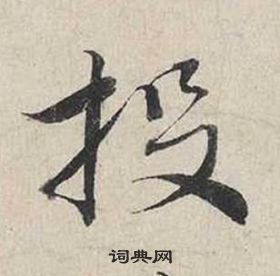 投
词典网